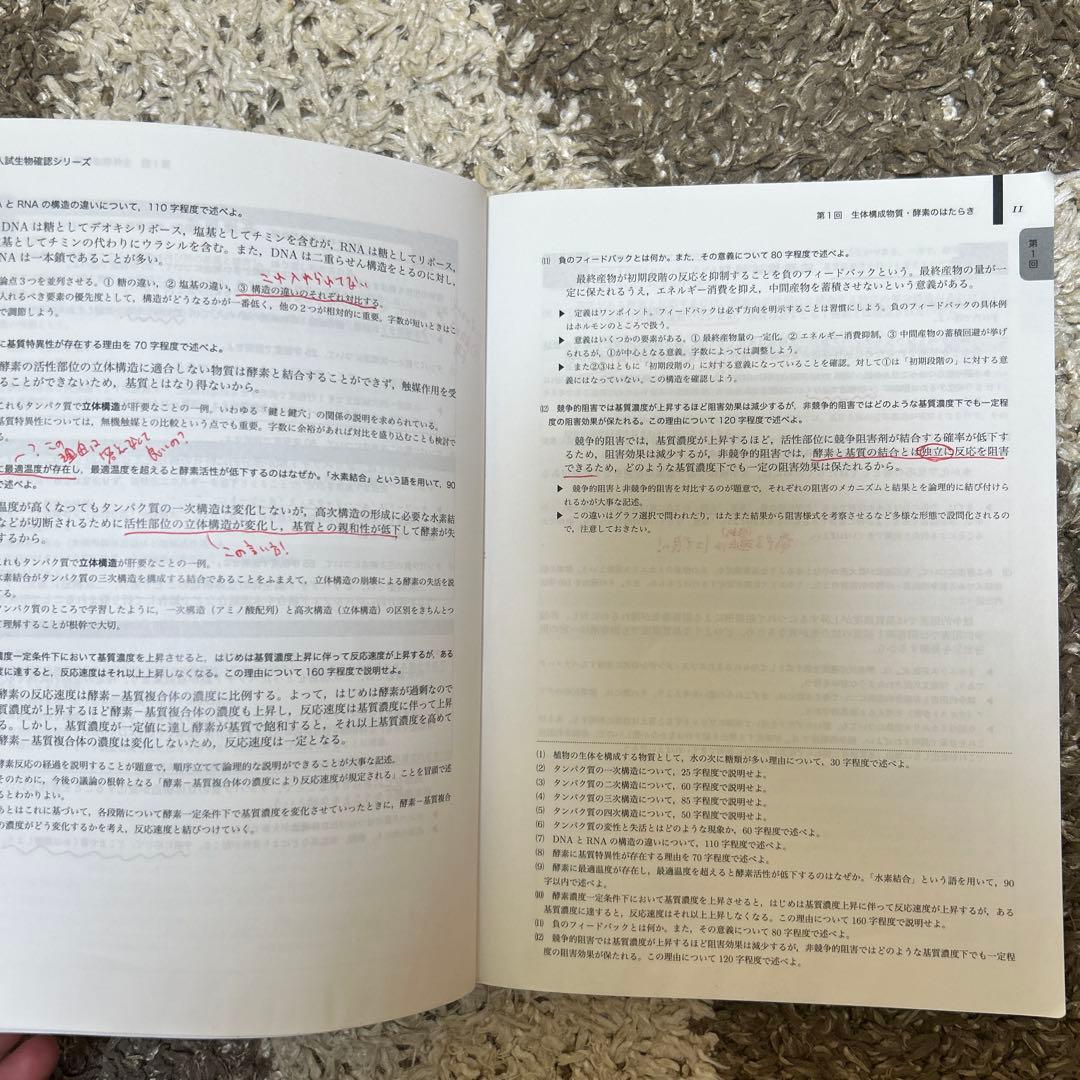 入試生物確認シリーズ
とRNAの構造の違いについて，110字程度で述べよ。
DNAは糖としてデオキシリボース，塩基としてチミンを含むが，RNAは糖としてリボース，
基としてチミンの代わりにウラシルを含む。また，DNAは二重らせん構造をとるのに対し，
NAは一本鎖であることが多い。
これ入れられてない
論点3つを並列させる。① 糖の違い，② 塩基の違い，③ 構造の違いのそれぞれ対比する。
入れるべき要素の優先度として，構造がどうなるかが一番低く，他の2つが相対的に重要。字数が短いときはこ
で調節しよう。
に基質特異性が存在する理由を70字程度で述べよ。
酵素の活性部位の立体構造に適合しない物質は酵素と結合することができず，触媒作用を受
ることができないため，基質とはなり得ないから。
これもタンパク質で立体構造が肝要なことの一例。いわゆる「鍵と鍵穴」の関係の説明を求められている。
基質特異性については，無機触媒との比較という点でも重要。字数に余裕があれば対比を盛り込むことも検討で
る。
？この理由は答えなくて良いの？
に最適温度が存在し，最適温度を超えると酵素活性が低下するのはなぜか。「水素結合」という語を用いて，90
で述べよ。
温度が高くなってもタンパク質の一次構造は変化しないが，高次構造の形成に必要な水素結
などが切断されるために活性部位の立体構造が変化し，基質との親和性が低下して酵素が失
するから。
この言い方！
これもタンパク質で立体構造が肝要なことの一例。
水素結合がタンパク質の三次構造を構成する結合であることをふまえて，立体構造の崩壊による酵素の失活を説
する。
タンパク質のところで学習したように，一次構造（アミノ酸配列）と高次構造（立体構造）の区別をきちんとつ
て理解することが根幹で大切。
濃度一定条件下において基質濃度を上昇させると，はじめは基質濃度上昇に伴って反応速度が上昇するが，ある
度に達すると，反応速度はそれ以上上昇しなくなる。この理由について160字程度で説明せよ。
酵素の反応速度は酵素－基質複合体の濃度に比例する。よって，はじめは酵素が過剰なので
質濃度が上昇するほど酵素－基質複合体の濃度も上昇し，反応速度は基質濃度に伴って上昇
る。しかし，基質濃度が一定値に達し酵素が基質で飽和すると，それ以上基質濃度を高めて
酵素－基質複合体の濃度は変化しないため，反応速度は一定となる。
酵素反応の経過を説明することが題意で，順序立てて論理的な説明ができることが大事な記述。
そのために，今後の議論の根幹となる「酵素－基質複合体の濃度により反応速度が規定される」ことを冒頭で述
るとわかりよい。
あとはこれに基づいて，各段階について酵素一定条件下で基質濃度を変化させていったときに，酵素－基質複合
の濃度がどう変化するかを考え，反応速度と結びつけていく。
第1回 生体構成物質・酵素のはたらき 11
第1回
⑾ 負のフィードバックとは何か。また，その意義について80字程度で述べよ。
最終産物が初期段階の反応を抑制することを負のフィードバックという。最終産物の量が一
定に保たれるうえ，エネルギー消費を抑え，中間産物を蓄積させないという意義がある。
▶ 定義はワンポイント。フィードバックは必ず方向を明示することは習慣にしよう。負のフィードバックの具体例
はホルモンのところで扱う。
▶ 意義はいくつかの要素がある。① 最終産物量の一定化，② エネルギー消費抑制，③ 中間産物の蓄積回避が挙げ
られるが，①が中心となる意義。字数によっては調整しよう。
▶ また②③はともに「初期段階の」に対する意義になっていることを確認。対して①は「初期段階の」に対する意
義にはなっていない。この構造を確認しよう。
⑿ 競争的阻害では基質濃度が上昇するほど阻害効果は減少するが，非競争的阻害ではどのような基質濃度下でも一定程
度の阻害効果が保たれる。この理由について120字程度で述べよ。
競争的阻害では，基質濃度が上昇するほど，活性部位に競争阻害剤が結合する確率が低下す
るため，阻害効果は減少するが，非競争的阻害では，酵素と基質の結合とは独立に反応を阻害
できるため，どのような基質濃度下でも一定の阻害効果は保たれるから。
▶ 競争的阻害と非競争的阻害を対比するのが題意で，それぞれの阻害のメカニズムと結果とを論理的に結び付けら
れるかが大事な記述。
▶ この違いはグラフ選択で問われたり，はたまた結果から阻害様式を考察させるなど多様な形態で設問化されるの
で，注意しておきたい。
⑴ 植物の生体を構成する物質として，水の次に糖類が多い理由について，30字程度で述べよ。
⑵ タンパク質の一次構造について，25字程度で説明せよ。
⑶ タンパク質の二次構造について，60字程度で説明せよ。
⑷ タンパク質の三次構造について，85字程度で説明せよ。
⑸ タンパク質の四次構造について，50字程度で説明せよ。
⑹ タンパク質の変性と失活とはどのような現象か，60字程度で述べよ。
⑺ DNAとRNAの構造の違いについて，110字程度で述べよ。
⑻ 酵素に基質特異性が存在する理由を70字程度で述べよ。
⑼ 酵素に最適温度が存在し，最適温度を超えると酵素活性が低下するのはなぜか。「水素結合」という語を用いて，90
字以内で述べよ。
⑽ 酵素濃度一定条件下において基質濃度を上昇させると，はじめは基質濃度上昇に伴って反応速度が上昇するが，ある
基質濃度に達すると，反応速度はそれ以上上昇しなくなる。この理由について160字程度で説明せよ。
⑾ 負のフィードバックとは何か。また，その意義について80字程度で述べよ。
⑿ 競争的阻害では基質濃度が上昇するほど阻害効果は減少するが，非競争的阻害ではどのような基質濃度下でも一定程
度の阻害効果が保たれる。この理由について120字程度で述べよ。